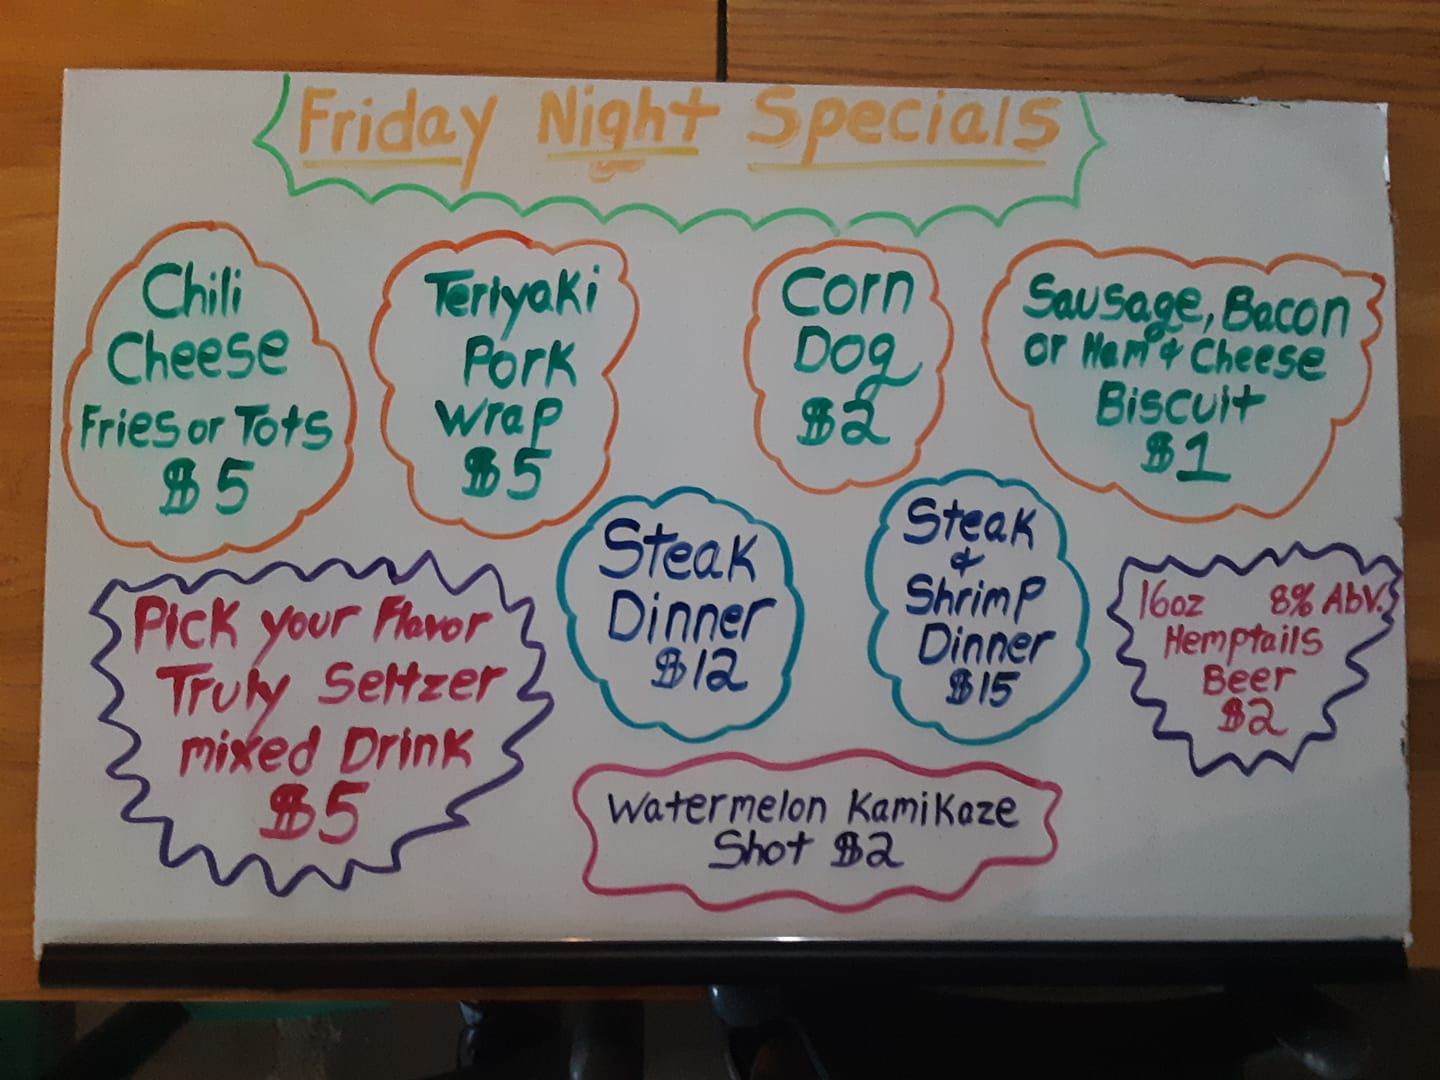 Friday Night Specials
Chili
Cheese
Fries or Tots
$5
Teriyaki
Pork
Wrap
$5
Corn
Dog
$2
Sausage, Bacon
or Ham & Cheese
Biscuit
$1
Steak
Dinner
$12
Steak
&
Shrimp
Dinner
$15
Pick your Flavor
Truly Seltzer
mixed Drink
$5
16oz 8% Abv.
Hemptails
Beer
$2
Watermelon Kamikaze
Shot $2